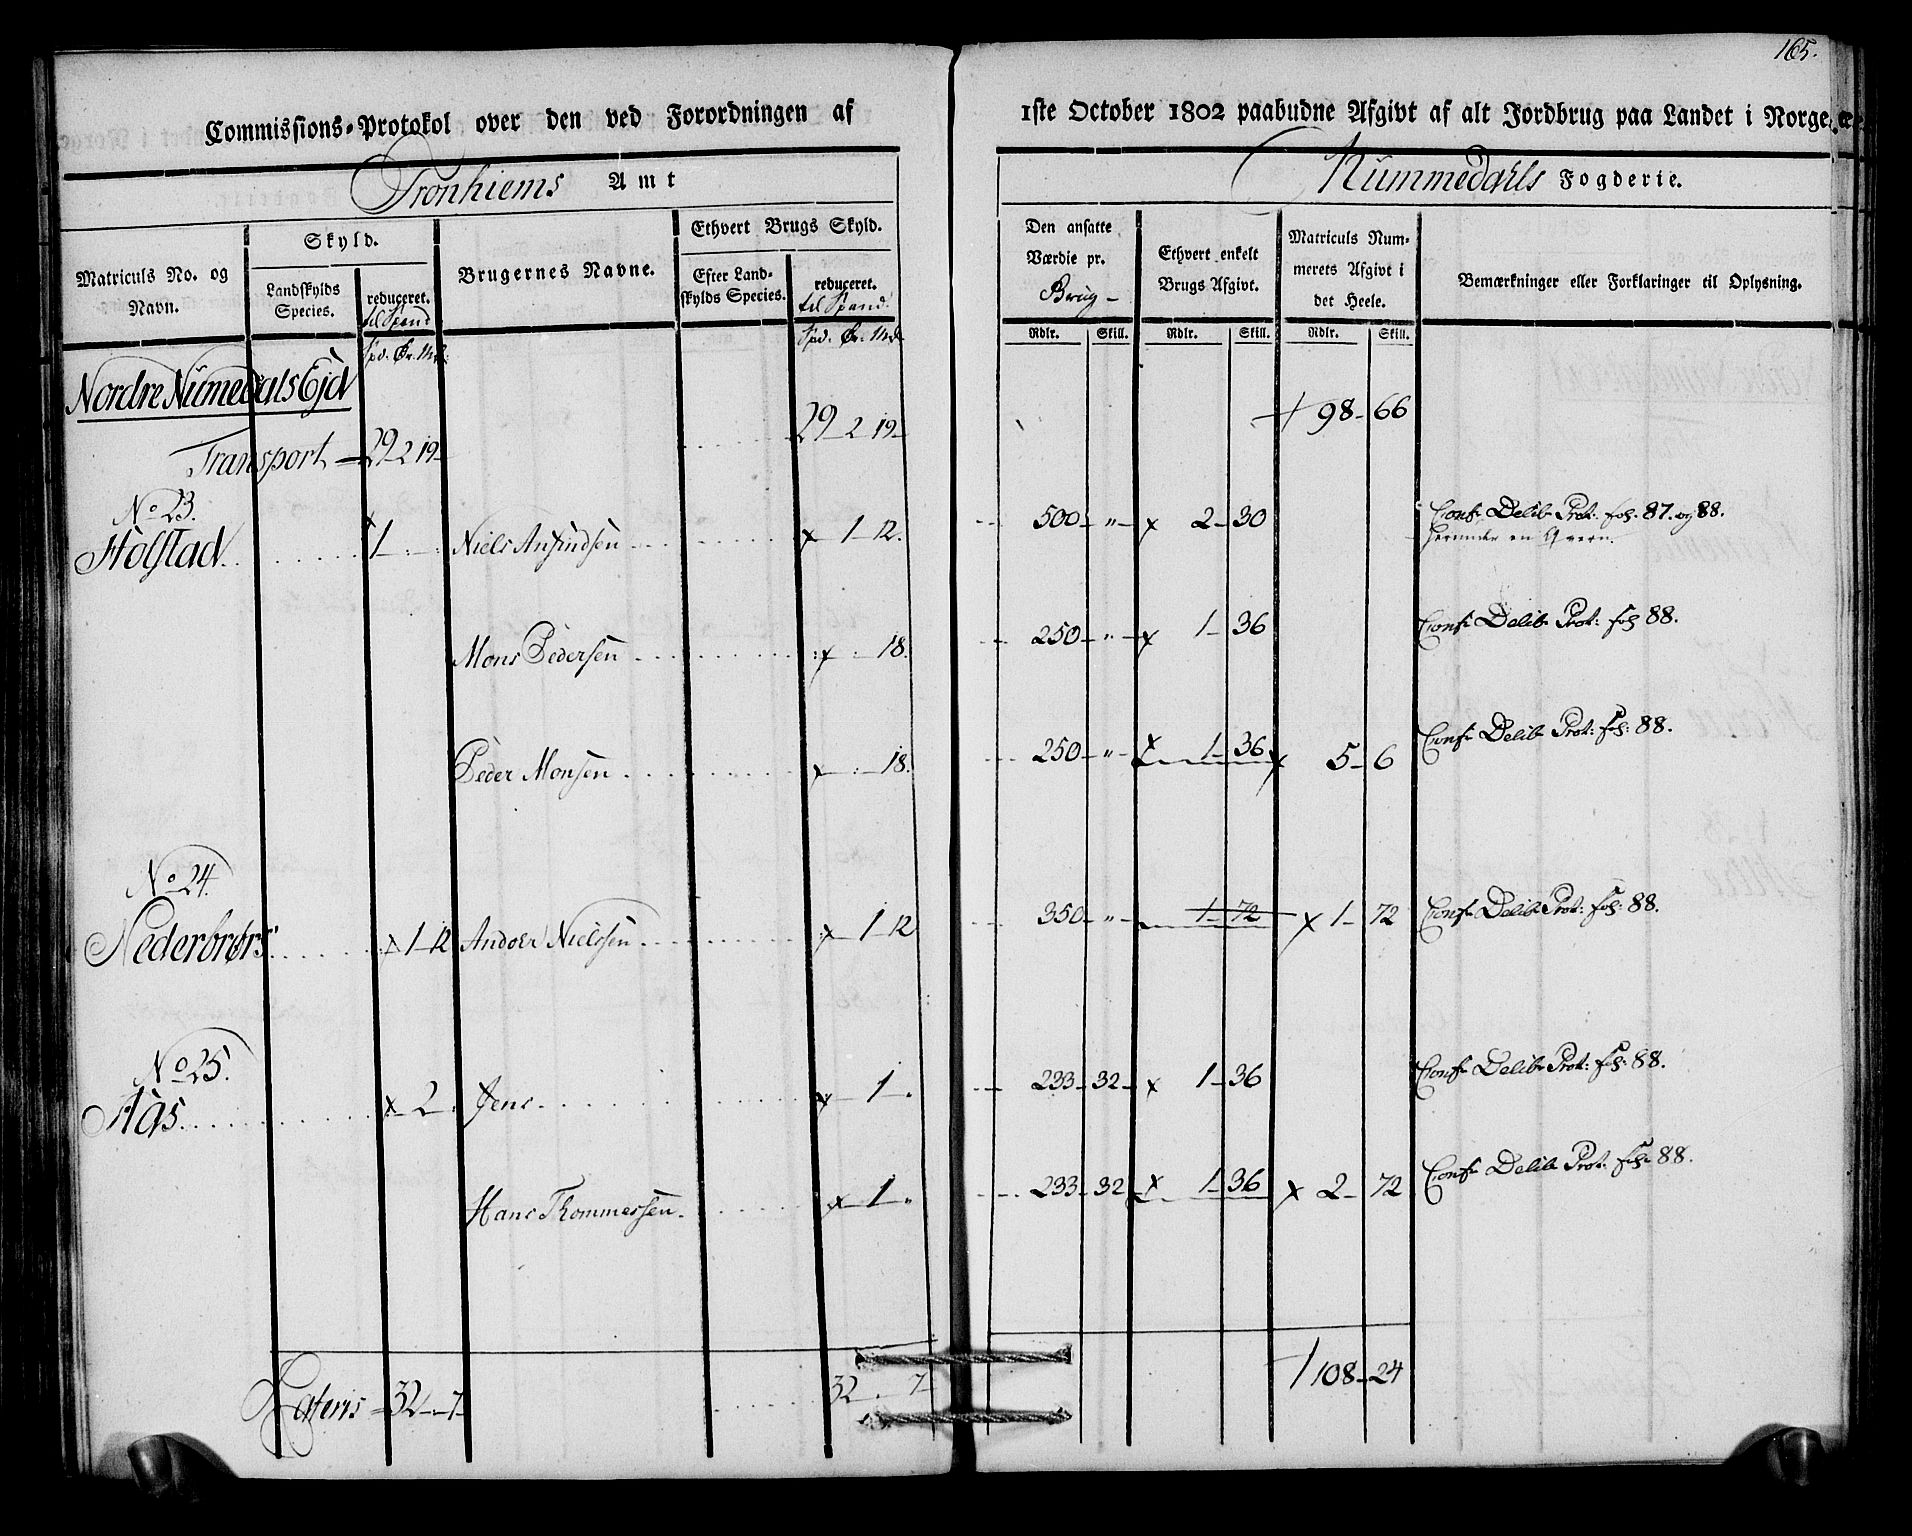 165.
Commissions-Protokol over den ved Forordningen af 1ste October 1802 paabudne Afgivt af alt Jordbrug paa Landet i Norge, ꝛc.
Tronhiems Amt
Nummedahls Fogderie.
Matriculs No. og Navn.
Skyld.
Landskylds Species.
reduceret. til Spand
Brugernes Navne.
Ethvert Brugs Skyld.
Efter Landskylds Species.
reduceret. til Spand.
Den ansatte Værdie pr. Brug
Ethvert enkelt Brugs Afgivt.
Matriculs Nummerets Afgivt i det Heele.
Bemærkninger eller Forklaringer til Oplysning.
Spd. Ør. Mk. Spd. Ør. Mk. Rdlr. Skill. Rdlr. Skill. Rdlr. Skill.
Nordre Numedals Ejd
Transport 29 2 19 29 2 19 98 66
No 23.
Holstad 1 Niels Anfindsen x 1 12. 500 " x 2 30 Conf. Delib. Prot. fol. 87. og 88.
herunder en Qvern.
Mons Pedersen x 18. 250 " x 1 36 Conf. Delib. Prot: fol 88.
Peder Monsen x 18. 250 " x 1 36 x 5 6 Conf. Delib. Prot: fol: 88.
No 24.
Nederbrørs x 1 12 Andoer Nielssen x 1 12 350 " 1 72 x 1 72 Conf. Delib. Prot: fol: 88.
No 25.
Aas x 2 Jens x 1 " 233 32 x 1 36 Conf. Delib. Prot: fol: 88.
Hans Thommessen x 1 " 233 32 x 1 36 x 2 72 Conf. Delib. Prot. fol. 88.
Lateris 32 " 7 32 " 7 108 24